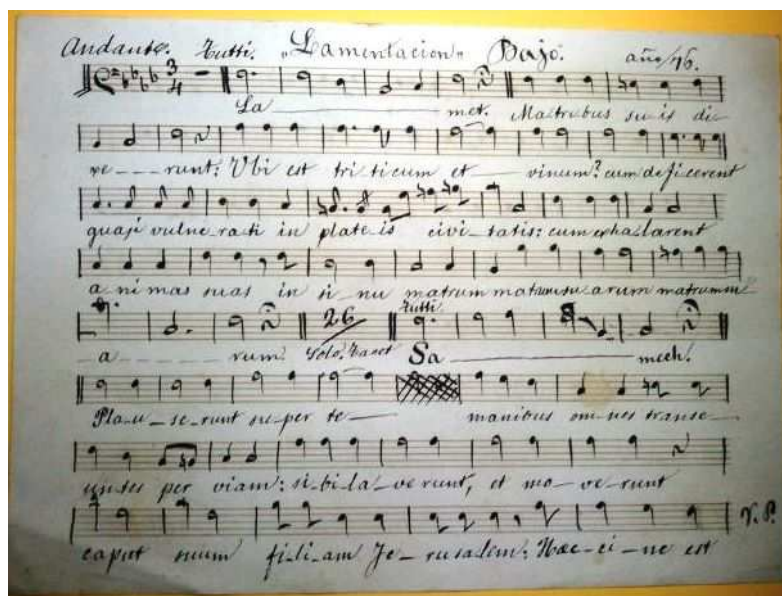 Andante. Tutti. "Lamentacion" Bajo. año/46.
3/4
La — met. Matribus su-is di
xe---runt: Ubi est tri ticum et — vinum? cum deficerent
quasi vulne-rati in plate-is civi-tatis: cum exhalarent
a ni mas suas in si-nu matrum matrum su arum matrum su
Tutti.
-a - - - - rum. 26 Solo. Sa — mech.
Pla-u-se-runt su-per te — manibus om-nes transe-
untes per viam: si-bi-la-ve runt, et mo-ve-runt
caput suum fi-li-am Je-rusalem: Hæc-ci-ne est
V. P.